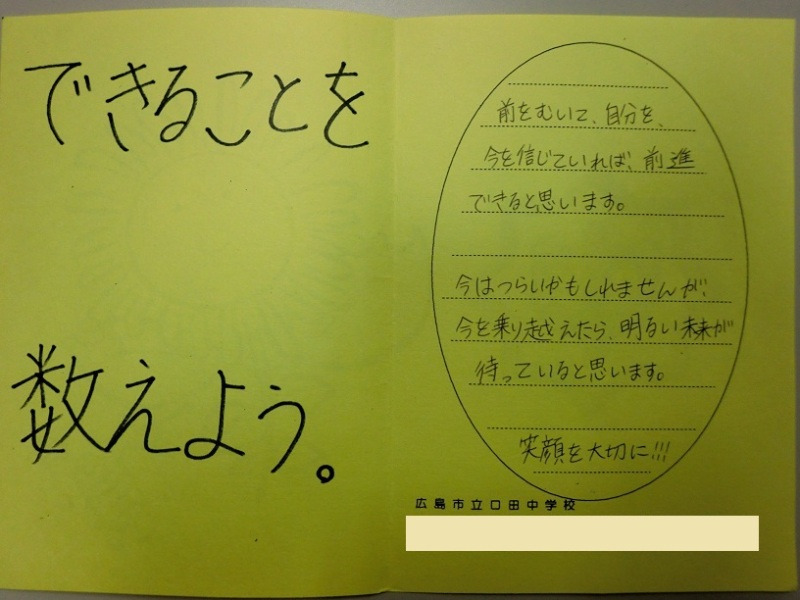 できることを
数えよう。
前をむいて、自分を、
今を信じていれば、前進
できると思います。
今はつらいかもしれませんが、
今を乗り越えたら、明るい未来が
待っていると思います。
笑顔を大切に!!!
広島市立口田中学校